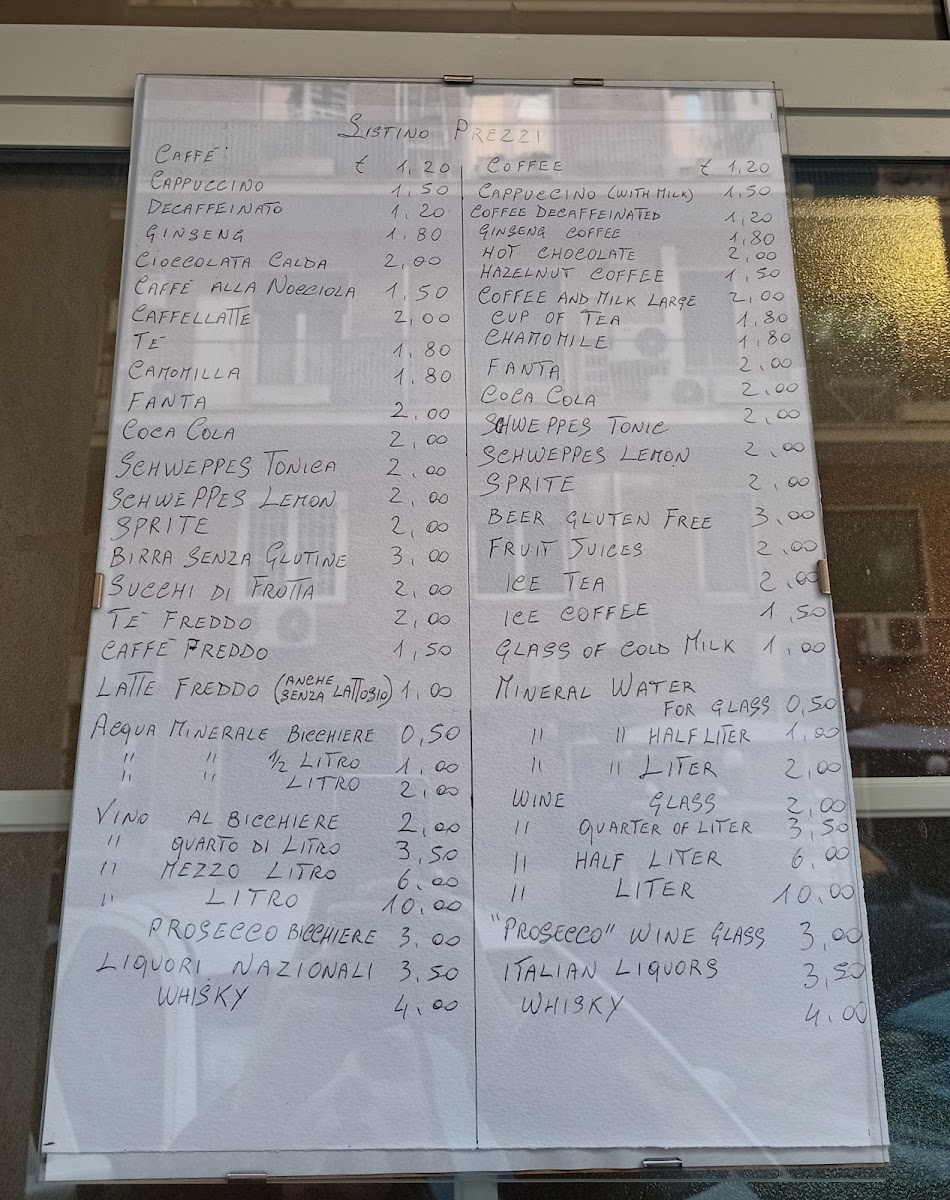 Listino Prezzi
Caffè € 1,20
Cappuccino 1,50
Decaffeinato 1,20
Ginseng 1,80
Cioccolata Calda 2,00
Caffè alla Nocciola 1,50
Caffellatte 2,00
Tè 1,80
Camomilla 1,80
Fanta 2,00
Coca Cola 2,00
Schweppes Tonica 2,00
Schweppes Lemon 2,00
Sprite 2,00
Birra senza Glutine 3,00
Succhi di Frutta 2,00
Tè Freddo 2,00
Caffè Freddo 1,50
Latte Freddo (anche senza lattosio) 1,00
Acqua Minerale Bicchiere 0,50
" " 1/2 Litro 1,00
" " Litro 2,00
Vino al Bicchiere 2,00
" Quarto di Litro 3,50
" Mezzo Litro 6,00
" Litro 10,00
Prosecco Bicchiere 3,00
Liquori Nazionali 3,50
Whisky 4,00
Coffee € 1,20
Cappuccino (with milk) 1,50
Coffee Decaffeinated 1,20
Ginseng Coffee 1,80
Hot Chocolate 2,00
Hazelnut Coffee 1,50
Coffee and Milk Large 2,00
Cup of Tea 1,80
Chamomile 1,80
Fanta 2,00
Coca Cola 2,00
Schweppes Tonic 2,00
Schweppes Lemon 2,00
Sprite 2,00
Beer Gluten Free 3,00
Fruit Juices 2,00
Ice Tea 2,00
Ice Coffee 1,50
Glass of Cold Milk 1,00
Mineral Water
for Glass 0,50
" " Half Liter 1,00
" " Liter 2,00
Wine Glass 2,00
" Quarter of Liter 3,50
" Half Liter 6,00
" Liter 10,00
"Prosecco" Wine Glass 3,00
Italian Liquors 3,50
Whisky 4,00